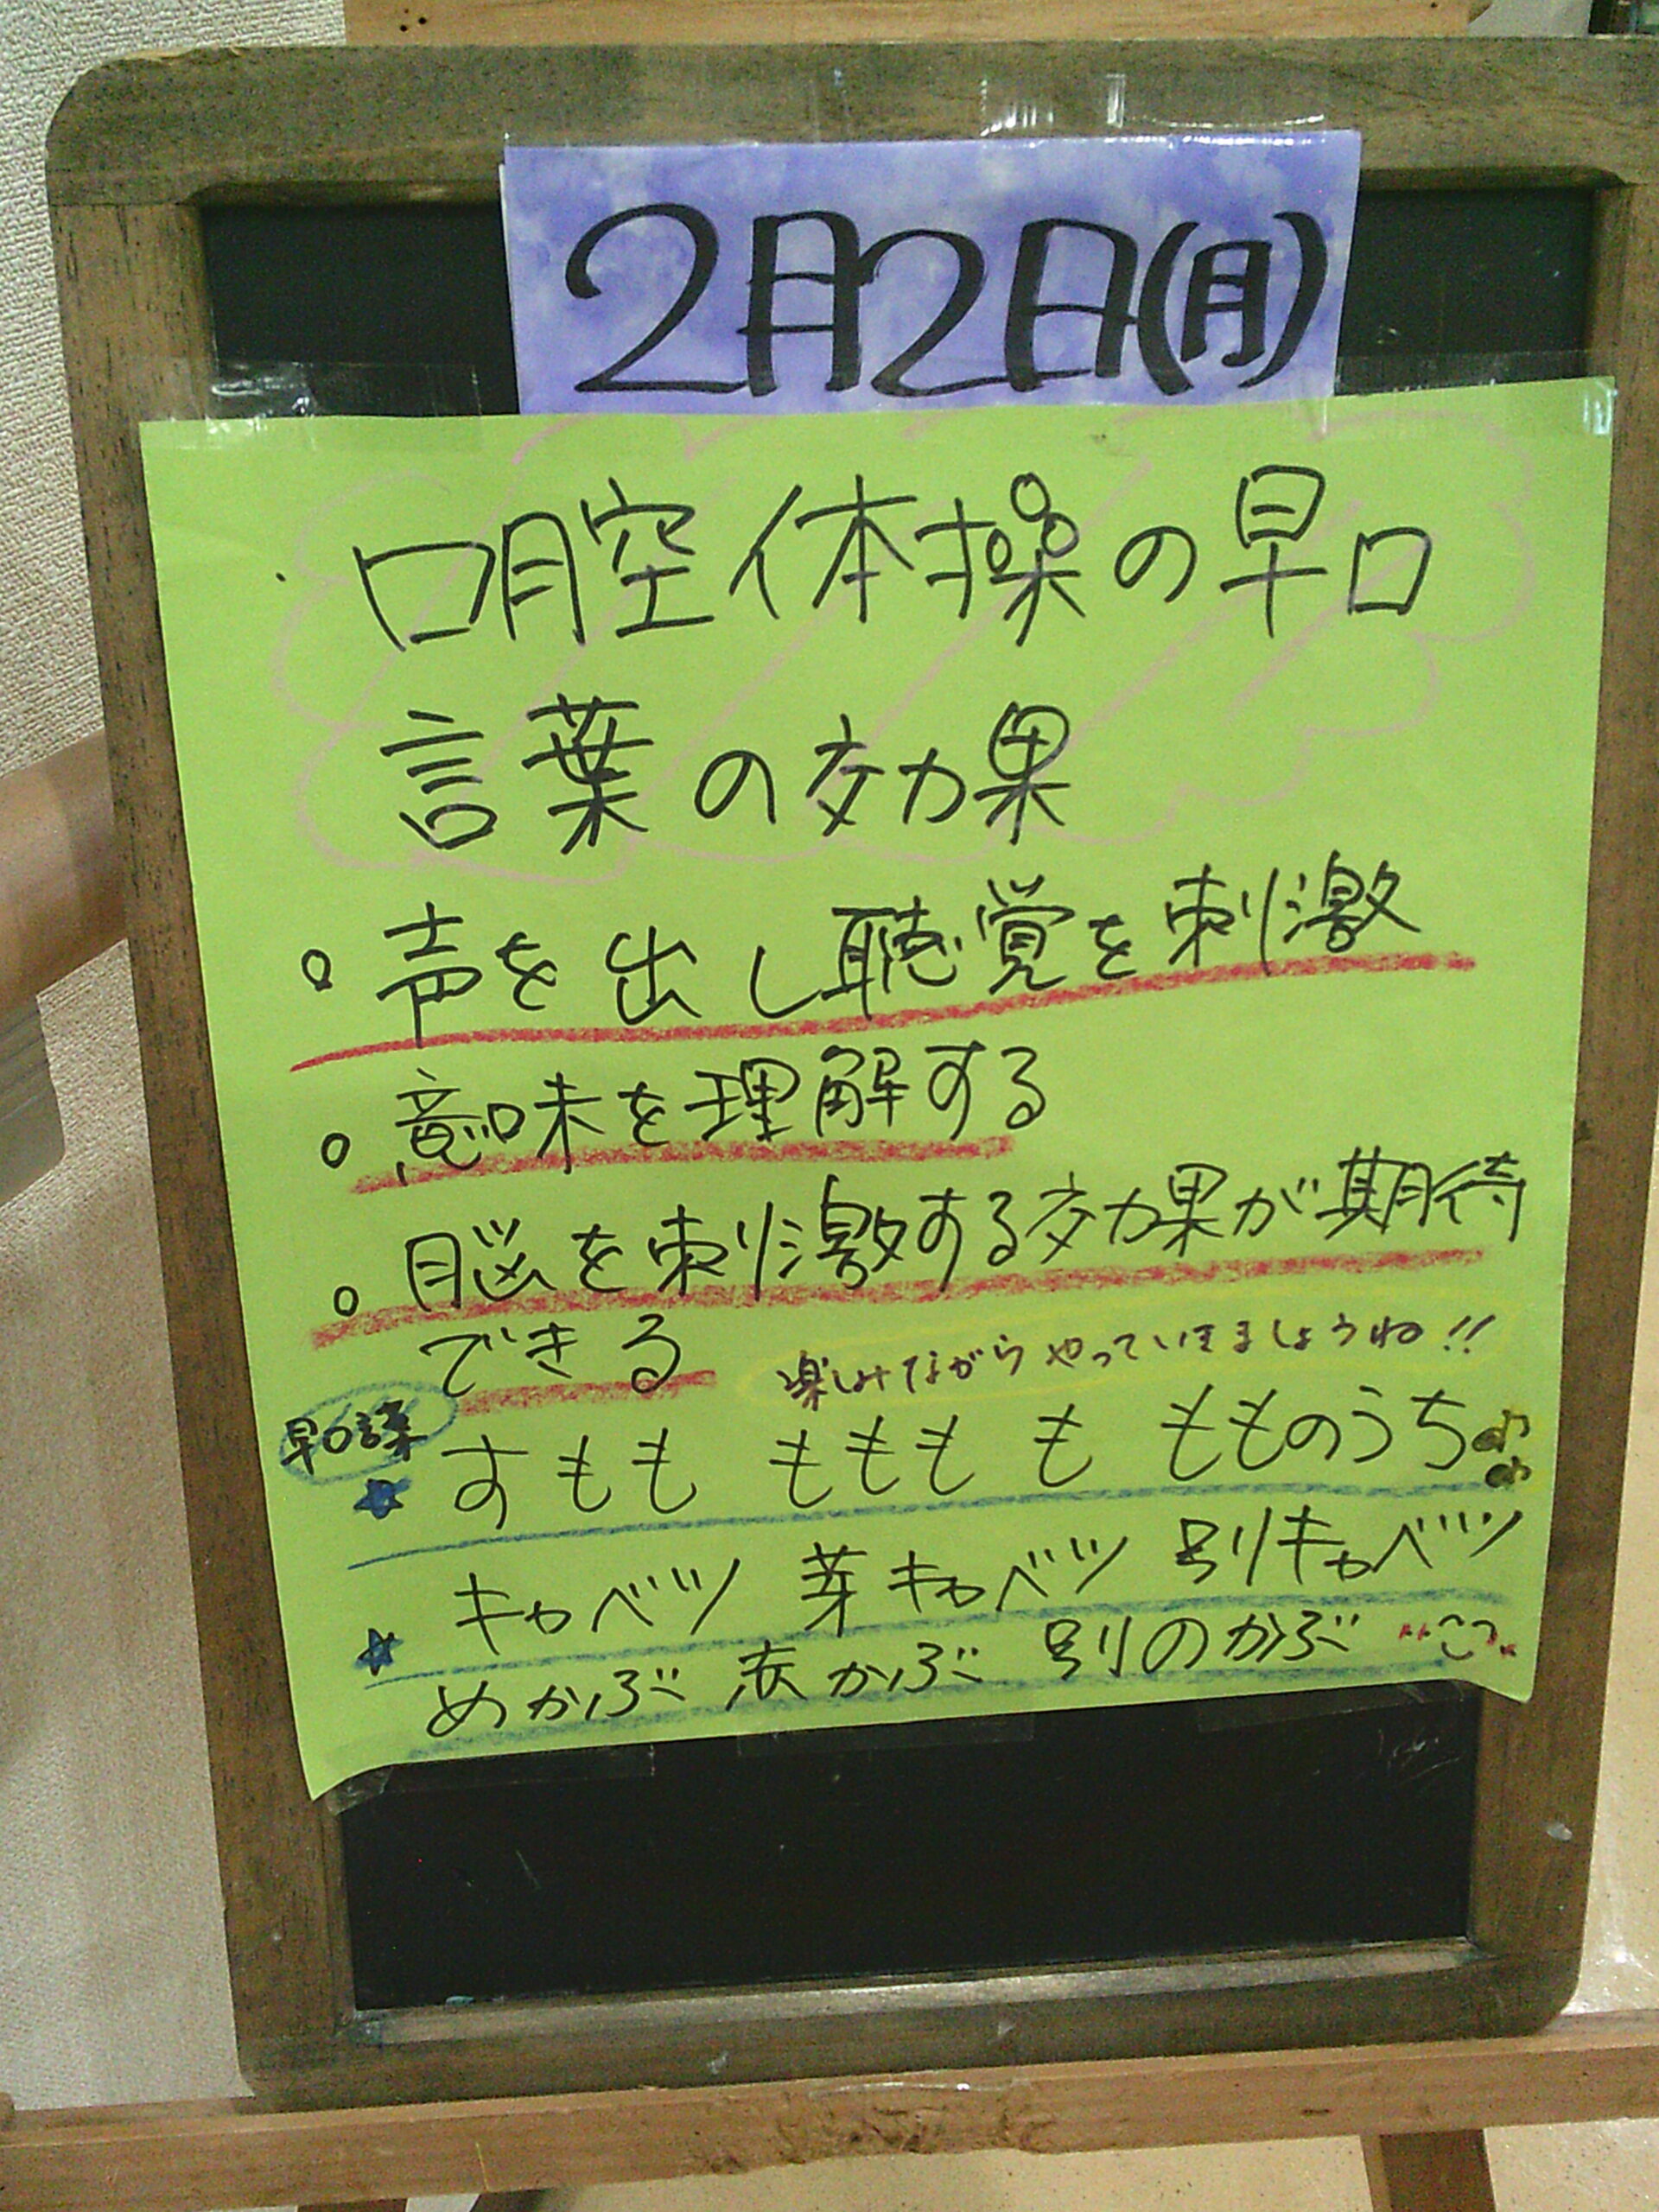 2月2日(月)
口腔体操の早口
言葉の効果
。声を出し聴覚を刺激
。意味を理解する
。脳を刺激する効果が期待
できる
楽しみながらやっていきましょうね!!
早口言葉
★すもも ももも も もものうち♪♪
★キャベツ 芽キャベツ 別キャベツ
めかぶ 赤かぶ 別のかぶ